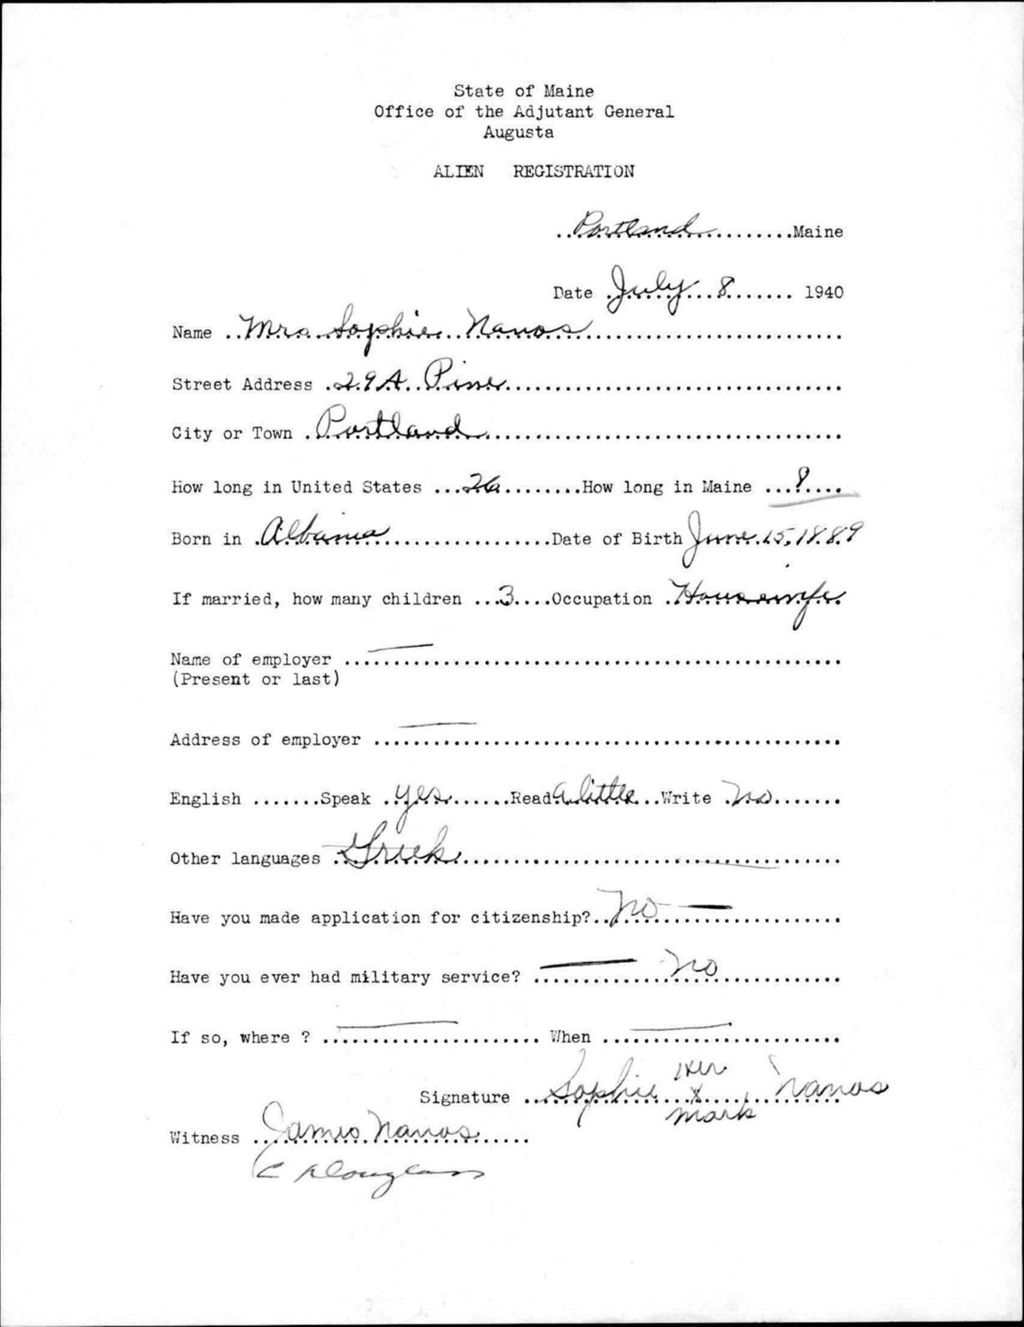 State of Maine
Office of the Adjutant General
Augusta
ALIEN REGISTRATION
Portland Maine
Date July 8 1940
Name Mrs Sophie Nanos
Street Address 29A Pine
City or Town Portland
How long in United States 26 How long in Maine 8
Born in Albania Date of Birth June 15, 1889
If married, how many children 3 Occupation Housewife
Name of employer —
(Present or last)
Address of employer —
English Speak yes Read a little Write no
Other languages Greek
Have you made application for citizenship? No —
Have you ever had military service? — no
If so, where ? — When —
her
Signature Sophie x Nanos
mark
Witness James Nanos
C Douglass